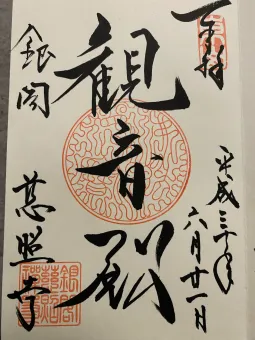 奉拝
平成三十年
六月廿一日
観音殿
銀閣
慈照寺